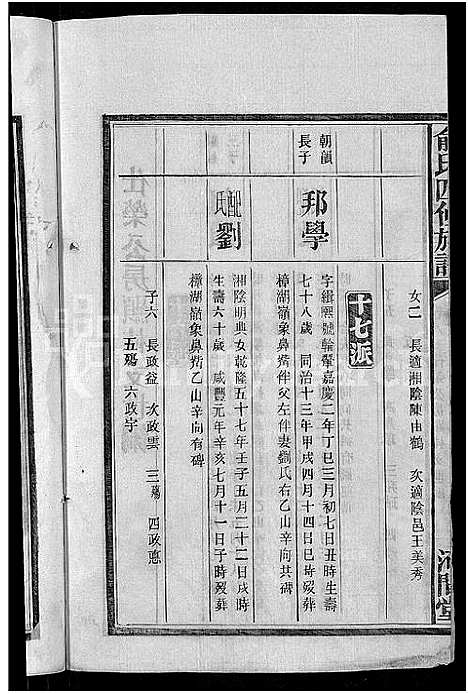 俞氏四修族譜
河間堂
女二 長適湘陰陳由鶴 次適陰邑王美秀
十七派
朝韻長子
邦學
字緝熙號翰聲嘉慶二年丁巳三月初七日丑時生壽
七十八歲 同治十三年甲戌四月十四日巳時歿葬
樟湖嶺象鼻嘴伴父左伴妻劉氏右乙山辛向共碑
配劉氏
湘陰明典女乾隆五十七年壬子五月二十二日戌時
生壽六十歲 咸豐元年辛亥七月十一日子時歿葬
樟湖嶺象鼻嘴乙山辛向有碑
子六 長政益 次政雲 三殤 四政惠
五殤 六政宇